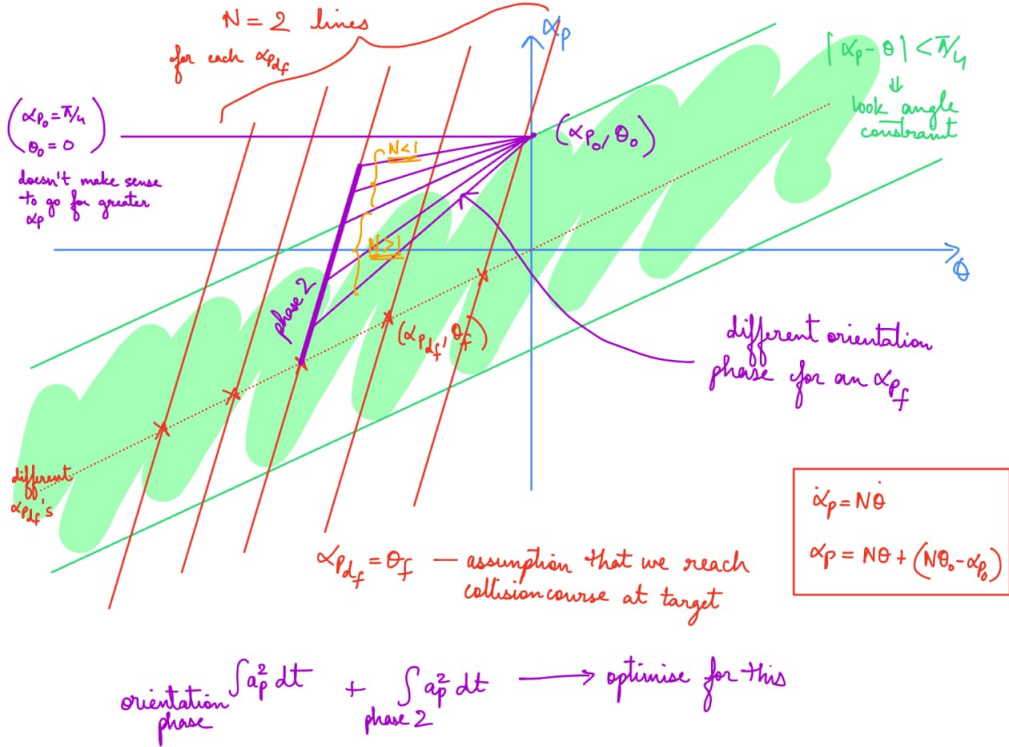 N = 2 lines
for each αp_df
αp
|αp - θ| < π/4
⇓
look angle
constraint
(αp₀ = π/4
θ₀ = 0)
doesn't make sense
to go for greater
αp
N<1
(αp₀, θ₀)
N>1
θ
phase 2
(αp_df, θf)
different orientation
phase for an αp_f
different
αp_df's
α̇p = Nθ̇
αp = Nθ + (Nθ₀ - αp₀)
αp_df = θf — assumption that we reach
collision course at target
∫ap² dt + ∫ap² dt → optimise for this
orientation phase 2
phase